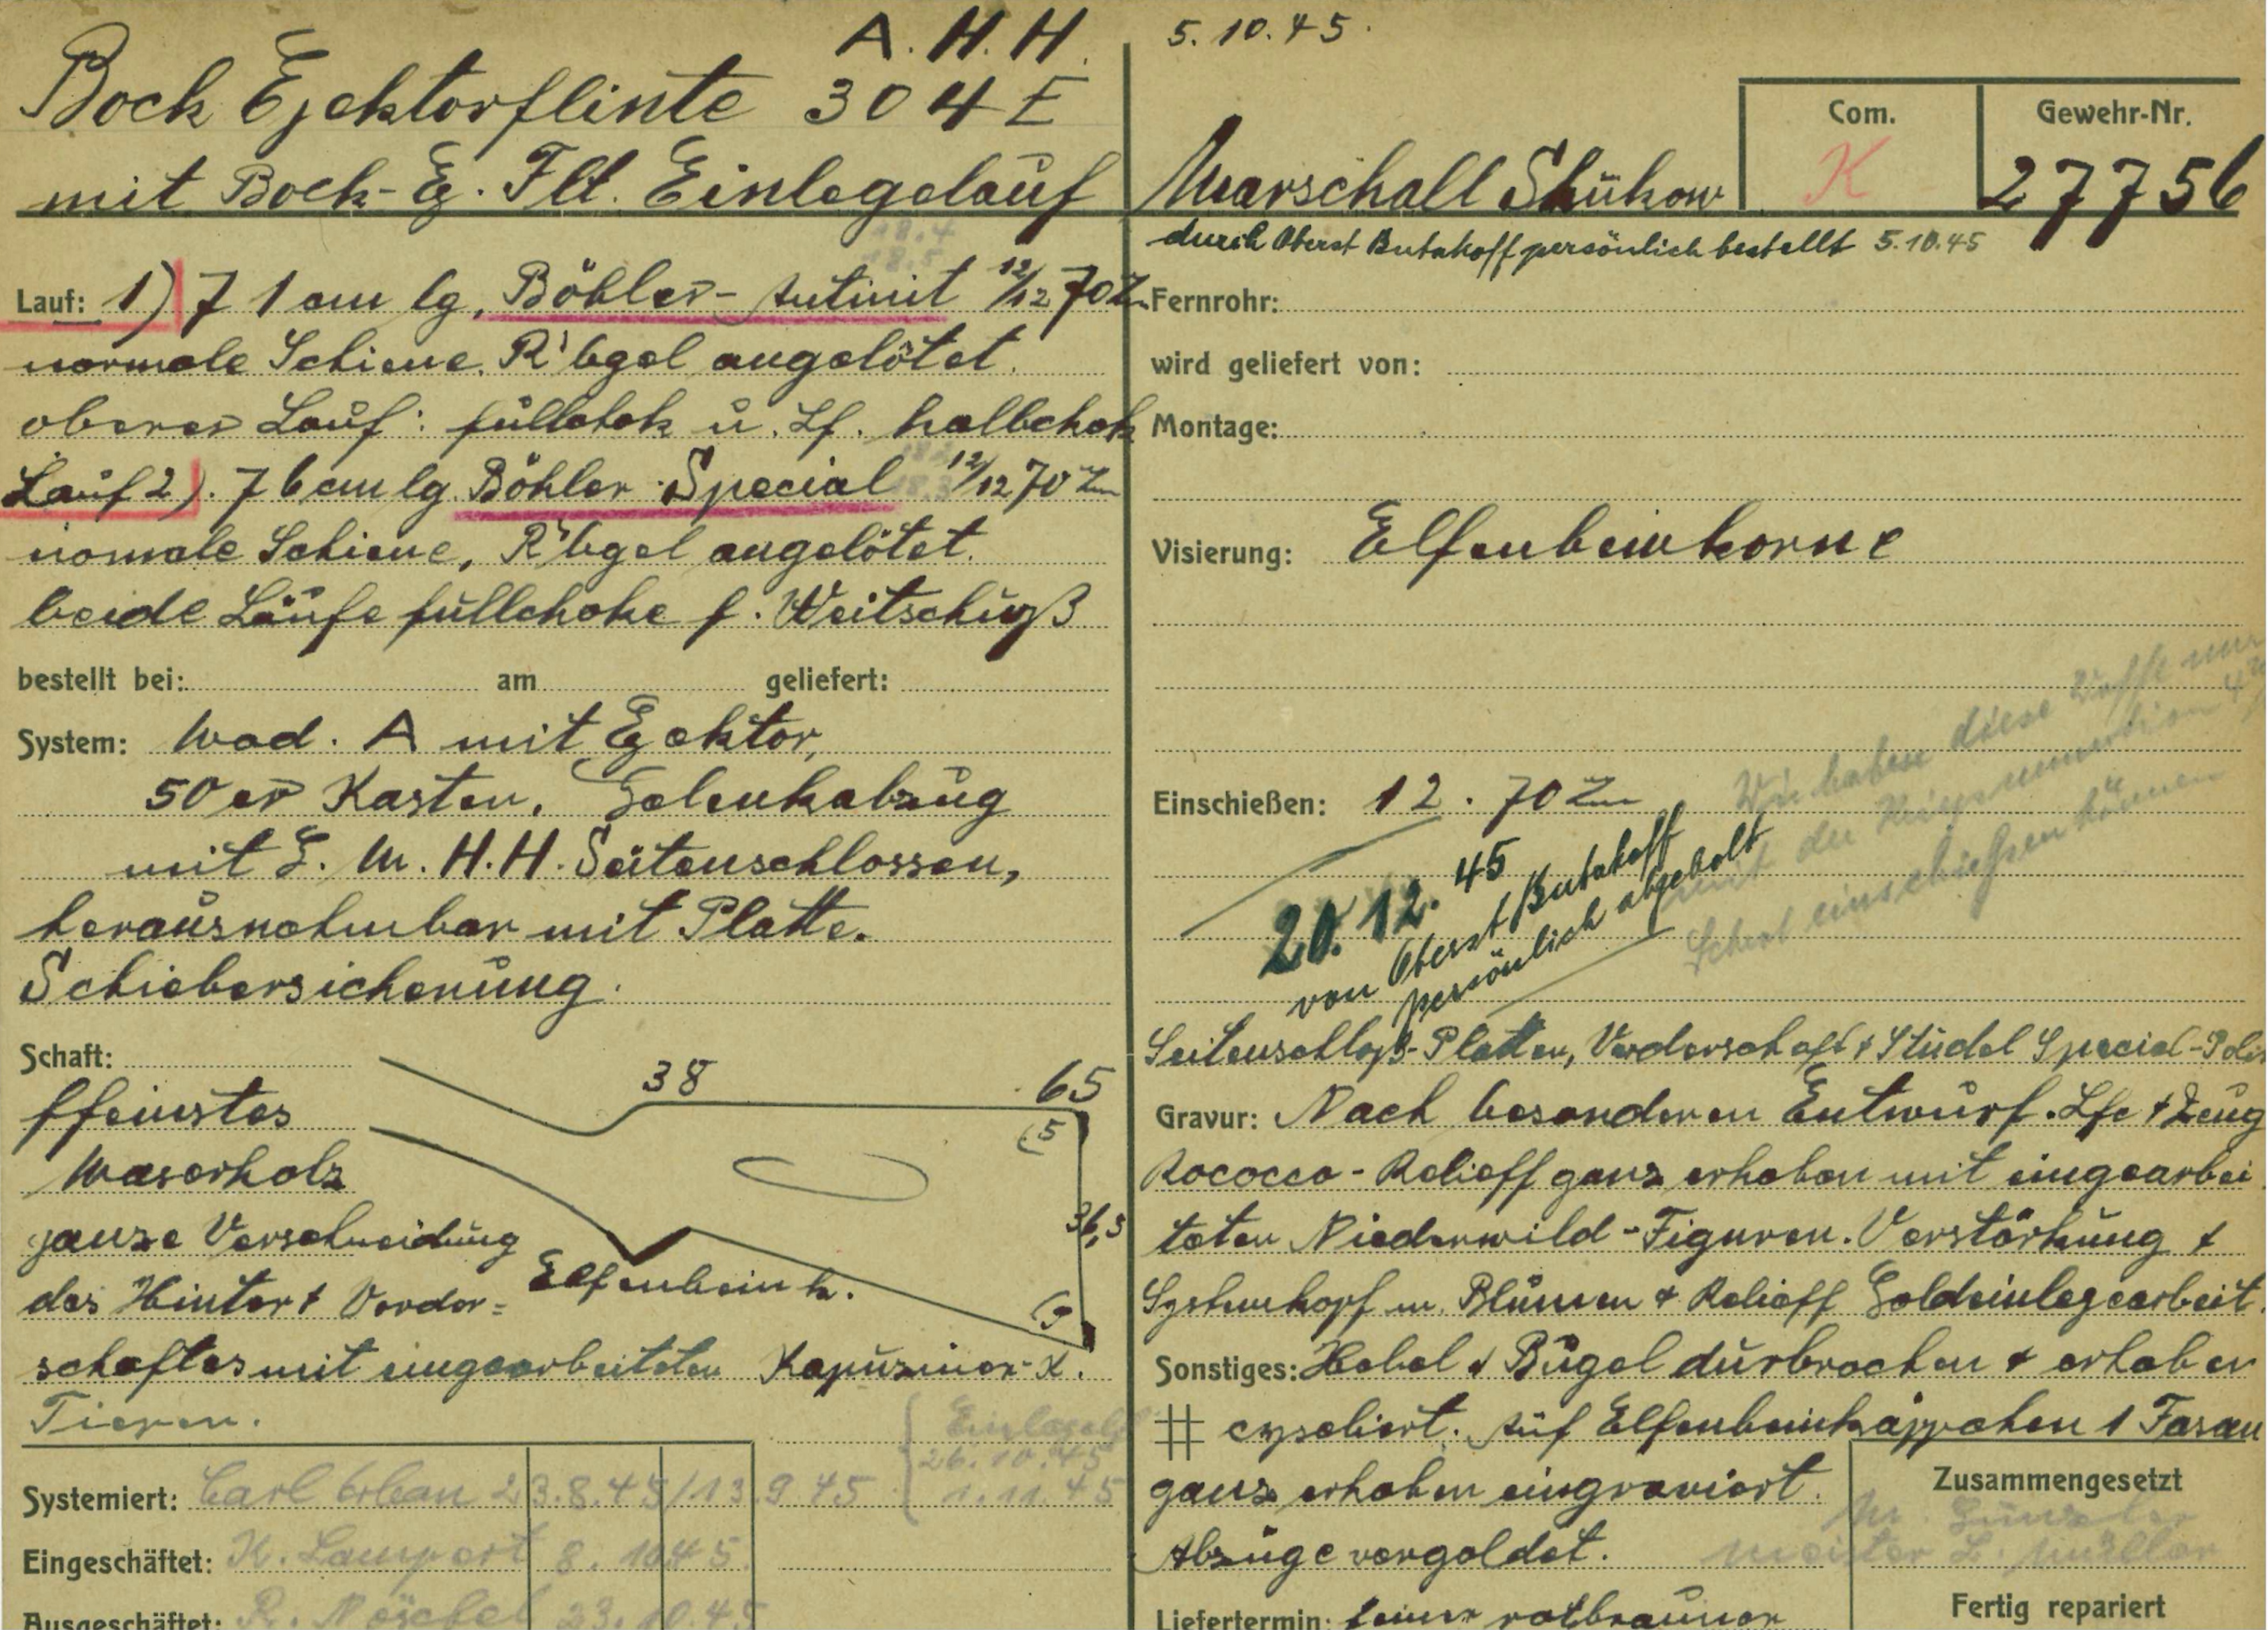 A. H. H.
Bock Ejektorflinte 304 E
mit Bock-Ej. Flt. Einlegelauf
Lauf: 1) 71 cm lg. Böhler-Antinit 12/12 70 Zm
normale Schiene. R'bgel angelötet.
oberer Lauf: fullchok u. Lf. halbchok
Lauf 2). 76 cm lg Böhler Special 12/12 70 Zm
normale Schiene, R'bgel angelötet.
beide Läufe fullchoke f. Weitschuß
bestellt bei: am geliefert:
System: Mod. A mit Ejektor,
50er Kasten. Gelenkabzug
mit E. M. H. H. Seitenschlossen,
herausnehmbar mit Platte.
Schiebersicherung.
Schaft:
ffeinstes
Maserholz
ganze Verschneidung
des Hinter + Vorder=
schaftes mit eingearbeiteten
Tieren.
38
65
(5
36,5
(9
Elfenbein k.
Kapuziner-K.
26.10.45
1.11.45
Systemiert: Carl Erban 23.8.45/13.9.45
Eingeschäftet: K. Lampert 8.10.45
Ausgeschäftet: 23.10.45
5.10.45.
Com.
K
Gewehr-Nr.
27756
Marschall Shukow
durch Oberst Butakoff persönlich bestellt 5.10.45
Fernrohr:
wird geliefert von:
Montage:
Visierung: Elfenbeinkorne
Einschießen: 12.70 Zm
Wir haben diese Waffe nur
mit der
Schrot einschießen können
20.12.45
von Oberst Butakoff
persönlich abgeholt
Seitenschloß-Platten, Vorderschaft + Stüdel Special-Polit
Gravur: Nach besonderen Entwurf. Lfe + Zeug
Rococco-Relieff ganz erhaben mit eingearbei
teten Niederwild-Figuren. Verstärkung +
Systemkopf m. Blumen + Relieff Goldeinlegearbeit.
Sonstiges: Hebel + Bügel durbrochen + erhaben
# cyseliert. Auf Elfenbeinkäppchen 1 Fasan
ganz erhaben eingraviert.
Abzüge vergoldet.
Zusammengesetzt
Meister L. Müller
Liefertermin: feiner rotbrauner
Fertig repariert